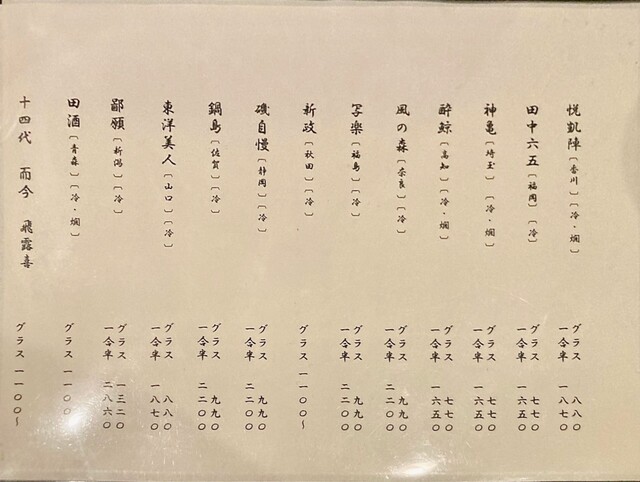 悦凱陣〔香川〕〔冷・燗〕
グラス 八八〇
一合半 一八七〇
田中六五〔福岡〕〔冷〕
グラス 七七〇
一合半 一六五〇
神亀〔埼玉〕〔冷・燗〕
グラス 七七〇
一合半 一六五〇
酔鯨〔高知〕〔冷・燗〕
グラス 七七〇
一合半 一六五〇
風の森〔奈良〕〔冷〕
グラス 九九〇
一合半 二二〇〇
写楽〔福島〕〔冷〕
グラス 九九〇
一合半 二二〇〇
新政〔秋田〕〔冷〕
グラス 一一〇〇〜
磯自慢〔静岡〕〔冷〕
グラス 九九〇
一合半 二二〇〇
鍋島〔佐賀〕〔冷〕
グラス 九九〇
一合半 二二〇〇
東洋美人〔山口〕〔冷〕
グラス 八八〇
一合半 一八七〇
鄙願〔新潟〕〔冷〕
グラス 一三二〇
一合半 二八六〇
田酒〔青森〕〔冷・燗〕
グラス 一一〇〇
十四代 而今 飛露喜
グラス 一一〇〇〜